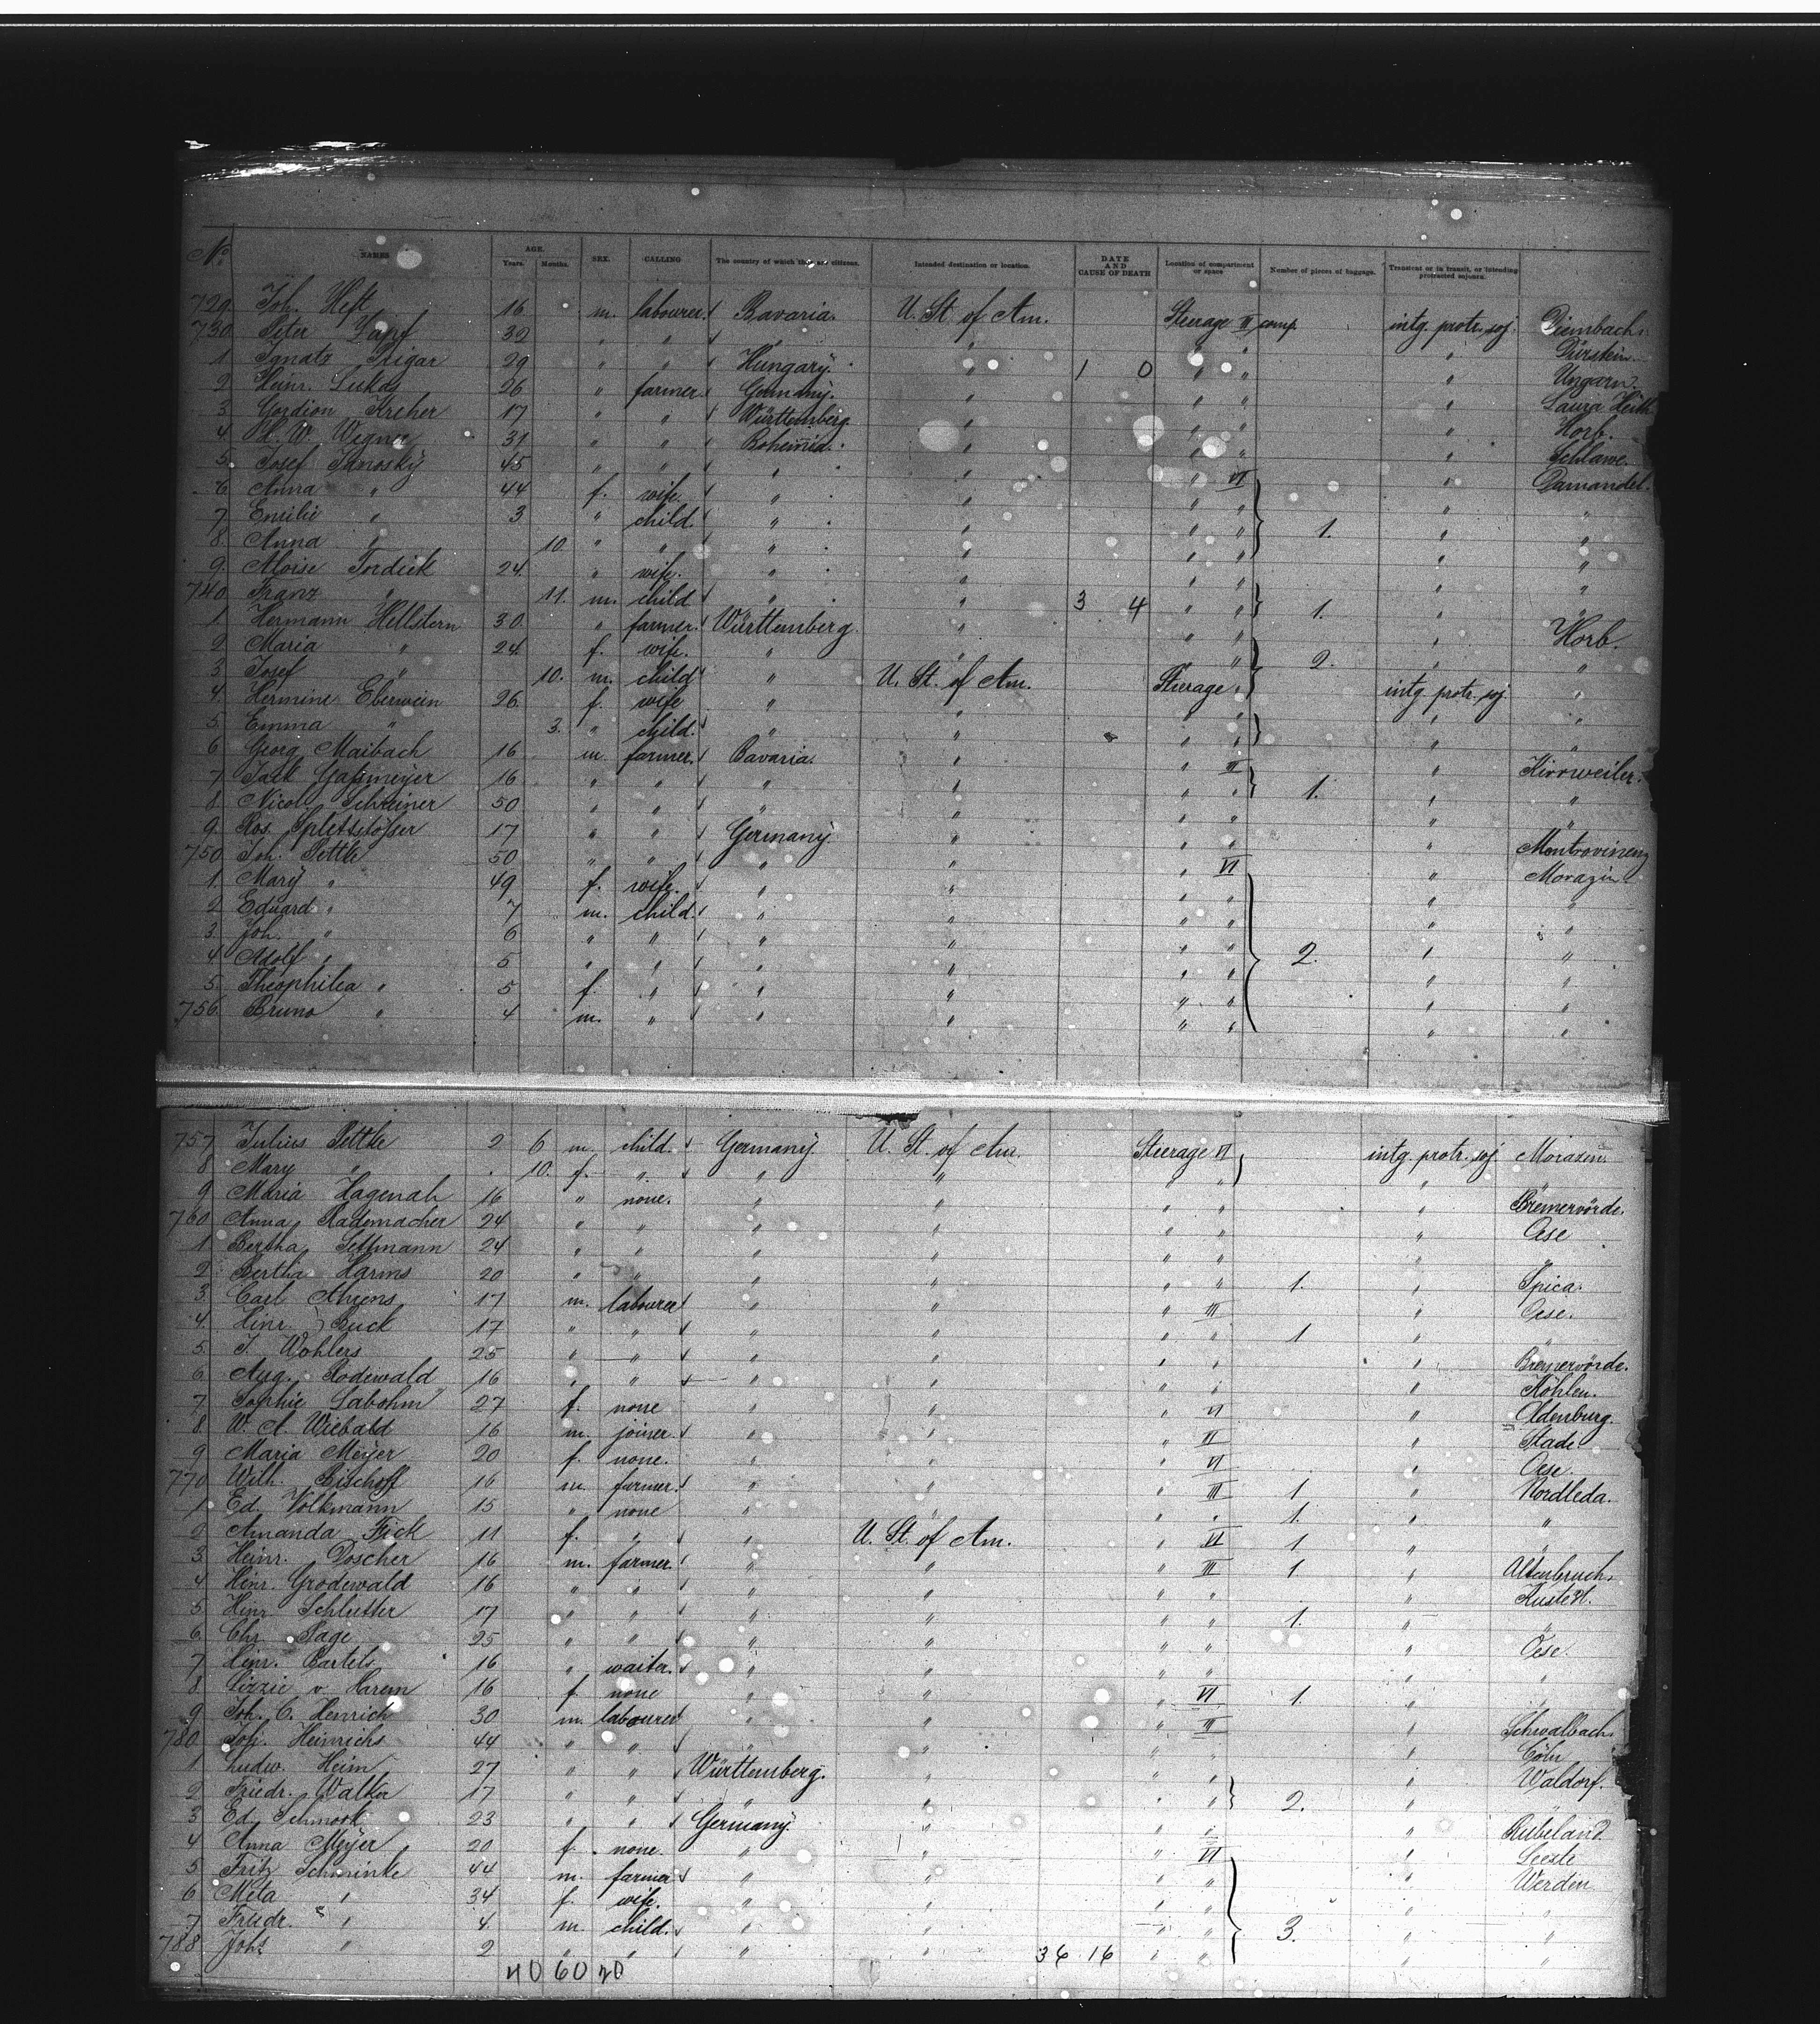 No. NAMES AGE. Years. Months. SEX. CALLING The country of which they are citizens. Intended destination or location. DATE AND CAUSE OF DEATH Location of compartment or space Number of pieces of baggage. Transient or in transit, or intending protracted sojourn.
729 Joh. Heft 16 m. labourer Bavaria. U. St. of Am. Steerage II comp. intg. protr. soj. Diembach.
730 Peter 32 " " " " " " " Dürstein
1 Ignatz Prigar 29 " " Hungary. " 1 0 " " " Ungarn
2 Heinr. Lukas 26 " farmer Germany. " " " " Laura
3 Gordion Kreher 17 " " Württemberg " " " " Horb.
4 H. W. Wegner 31 " " Bohemia. " " " " Schlawe.
5 Josef Janosky 45 " " " " " VI " Damandel.
6 Anna " 44 f. wife " " " " " "
7 Emilie " 3 " child " " " " 1. " "
8 Anna " 10. " " " " " " " "
9 Aloise Tordick 24 " wife. " " " " " "
740 Franz " 11. m. child " " 3 4 " " 1. " "
1 Hermann Hellstern 30. " farmer Württemberg " " " " Horb.
2 Maria " 24 f. wife. " " " " 2. " "
3 Josef " 10. m. child " U. St. of Am. Steerage " intg. protr. soj "
4 Hermine Eberwein 26 f. wife " " " " " "
5 Emma " 3. " child. " " " " " "
6 Georg Maibach 16 m. farmer. Bavaria. " " III " Kirrweiler.
7 Jack Gaßmeyer 16 " " " " " " 1. " "
8 Nicol. Schreiner 50 " " " " " " " "
9 Ros. Splettstößer 17 " " Germany " " " " Montrovineny
750 Joh. Pettke 50 " " " " " VI " Morazin
1 Mary " 49 f. wife. " " " " " "
2 Eduard " 7 m. child. " " " " " "
3 Joh. " 6 " " " " " " " "
4 Adolf " 5 " " " " " " 2. " "
5 Theophilia " 5 f. " " " " " " "
756 Bruno " 4 m. " " " " " " "
757 Julius Pettke 2 6 m. child. Germany U. St. of Am. Steerage VI intg. protr. soj. Morazin.
8 Mary " 10. f. " " " " " "
9 Maria Hagenah 16 " none. " " " " " Bremervörde.
760 Anna Rademacher 24 " " " " " " " Oese
1 Bertha Settmann 24 " " " " " " " "
2 Bertha Harms 20 " " " " " " 1. " Spica.
3 Carl Ahrens 17 m. labourer " " " III " Oese.
4 Hinr. Buck 17 " " " " " " 1 " "
5 J. Wohlers 25 " " " " " " " Bremervörde.
6 Aug. Rodewald 16 " " " " " " " Köhlen.
7 Sophie Labohm 27 f. none " " " VI " Oldenburg.
8 W. A. Wiebald 16 m. joiner. " " " II " Stade
9 Maria Meyer 20 f. none. " " " VI " Oese
770 Wilh. Bischoff 16 m. farmer. " " " III 1 " Nordleda.
1 Ed. Volkmann 15 " none " " " " 1. " "
2 Amanda Fick 11 f. " " U. St. of Am. " VI 1 " "
3 Heinr. Doscher 16 m. farmer. " " " III 1 " Altenbruch.
4 Hinr. Grodewald 16 " " " " " " "
5 Hinr Schlutter 17 " " " " " " 1. " "
6 Chr. Sage 25 " " " " " " " Oese.
7 Hinr. Bartels 16 " waiter. " " " " " "
8 Lizzie v. Harem 16 f. none " " " VI 1. " "
9 Joh. C. Henrich 30 m. labourer " " " II " Schwalbach.
780 Joh. Heinrichs 44 " " " " " " " Cöln
1 Ludw. Heim 27 " " Württemberg. " " " " Waldorf.
2 Friedr. Walker 17 " " " " " " 2. "
3 Ed. Schmook 23 " " Germany. " " " Rübeland.
4 Anna Meyer 20 f. none. " " " VI " Leeste
5 Fritz Schminke 44 m. farmer " " " " " Werden
6 Meta " 34 f. wife. " " " " " "
7 Friedr. " 4 m. child. " " " " 3. " "
788 Johs " 2 " " " " 36 16 " " " "
40 60 20